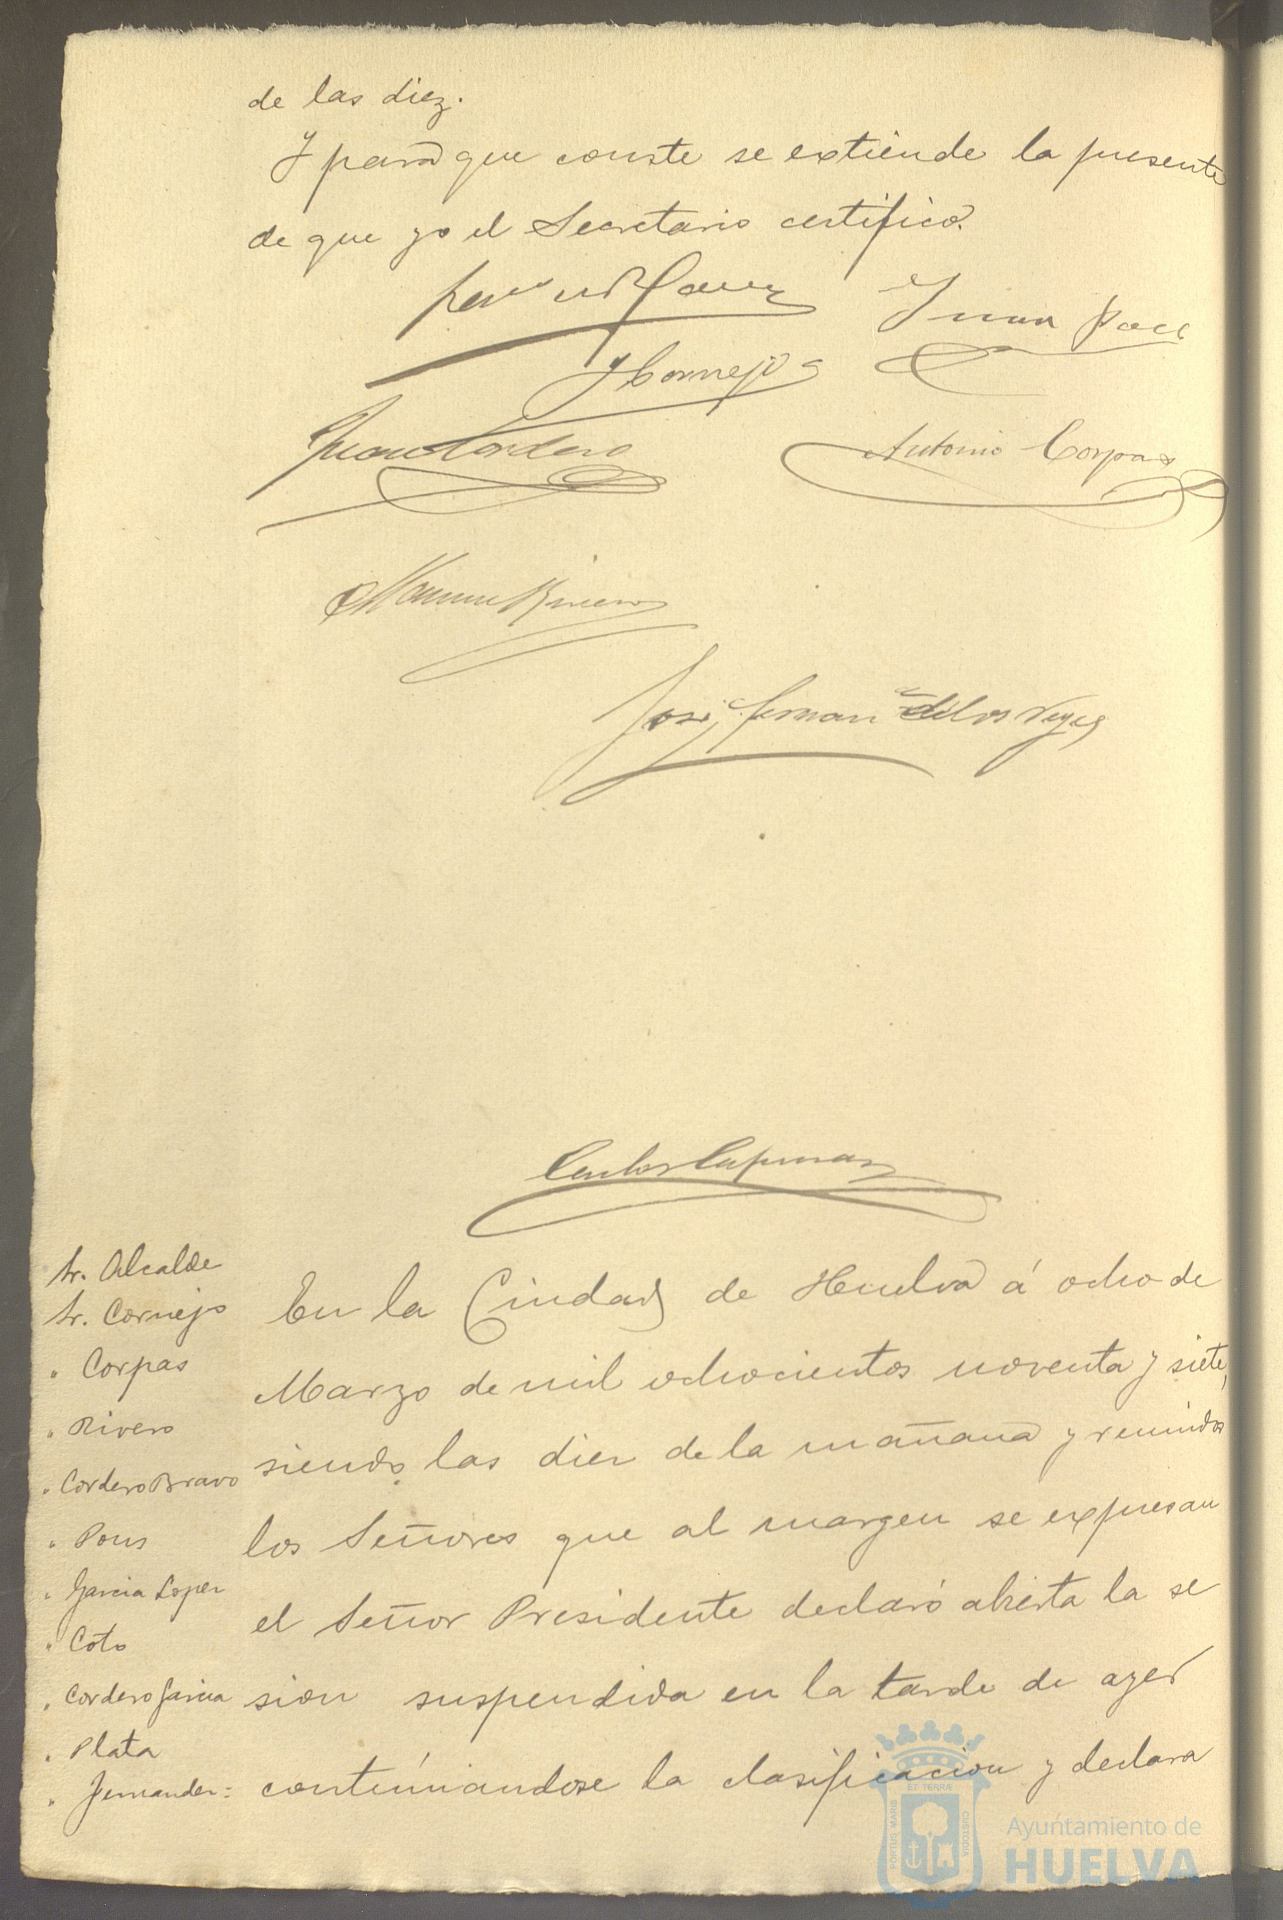 de las diez.
Y para que conste se extiende la presente
de que yo el Secretario certifico.
Juan
Y Cornejo
Juan Cordero
Antonio Corpas
Manuel Rivero
José Fernan de los Reyes
Carlos
Sr. Alcalde
Sr. Cornejo
" Corpas
" Rivero
" Cordero Bravo
" Pons
" Garcia Lopez
" Coto
" Cordero Garcia
" Plata
" Fernandez =
En la Ciudad de Huelva á ocho de
Marzo de mil ochocientos noventa y siete,
siendo las diez de la mañana y reunidos
los Señores que al margen se expresan
el Señor Presidente declaró abierta la se
sion suspendida en la tarde de ayer
continuandose la clasificacion y declara
PORTUS MARIS
ET TERRÆ
CUSTODIA
Ayuntamiento de
HUELVA